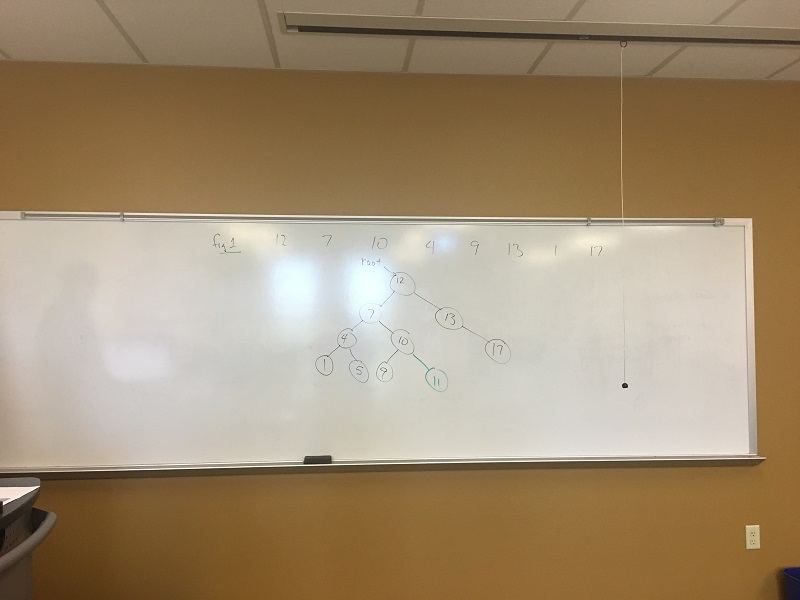 fig 1 12 7 10 4 9 13 1 17
root
12
7 13
4 10 17
1 5 9 11